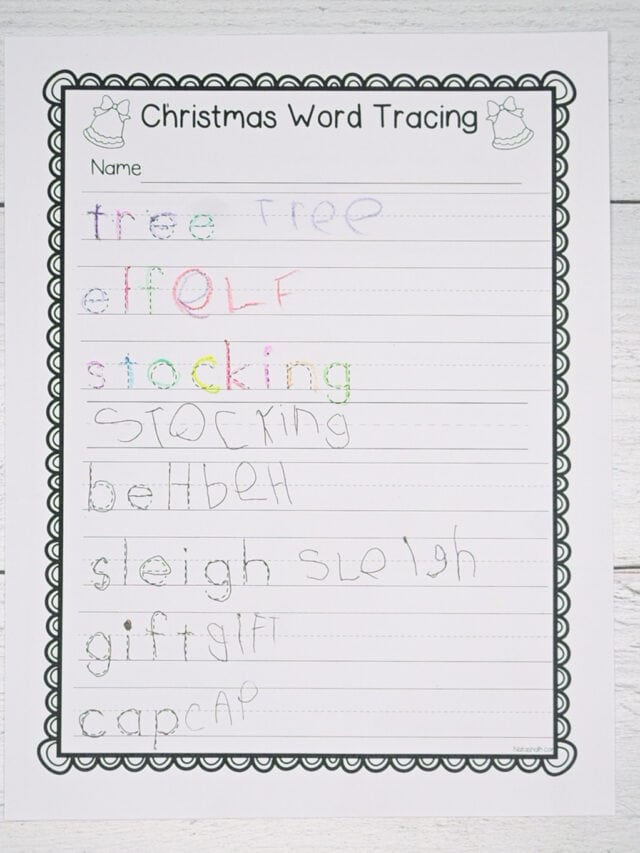 Christmas Word Tracing
Name
tree Tree
elf eLF
stocking
STOCKing
beHbeH
sleigh SLeIgh
gift gIFT
cap CAP